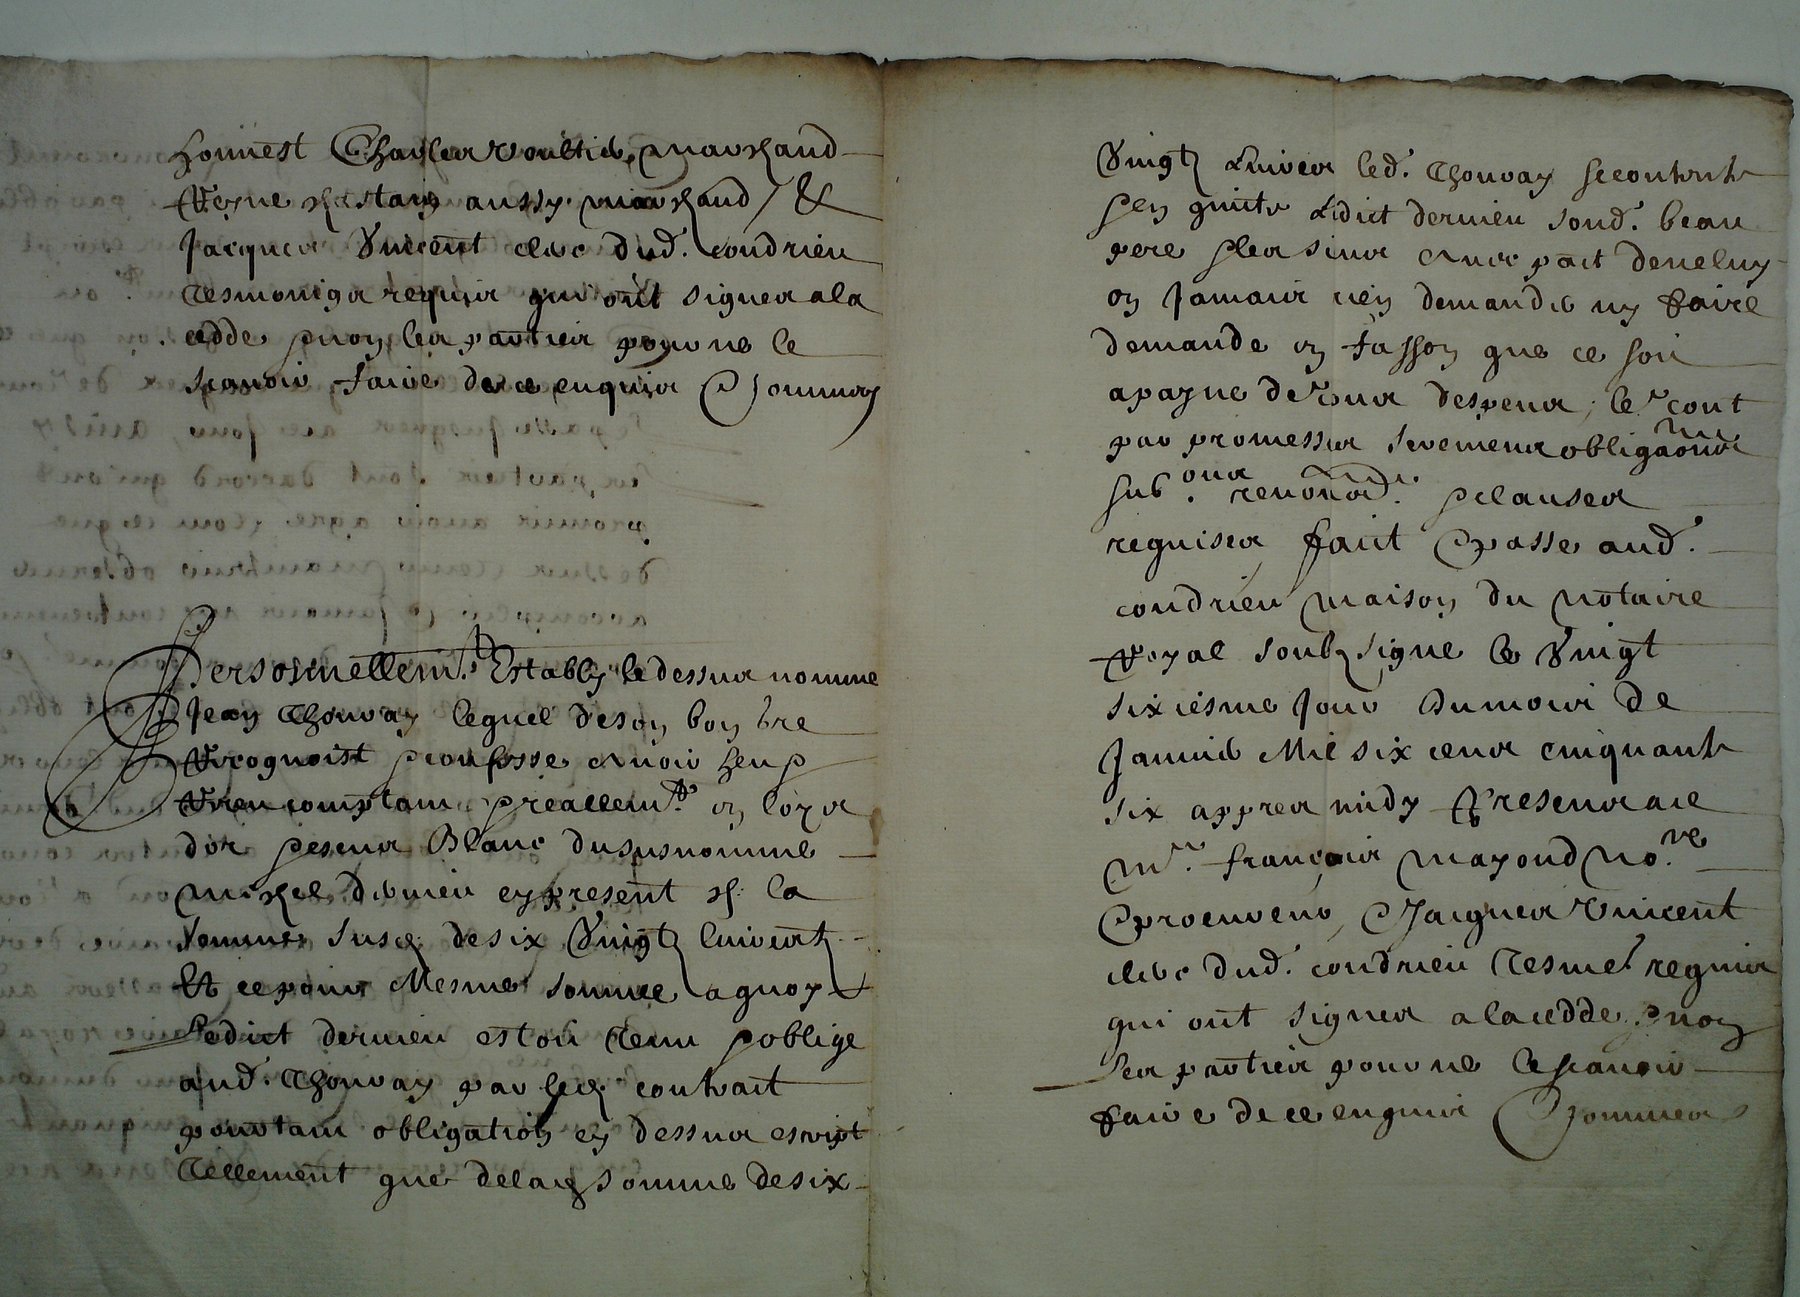 honnest Charles voultié, marchand
Reyne Chastaing aussy marchand, &
Jacques Vincent clerc dud. Condrieu
tesmoingz requis qui ont signes a la
cedde, & non les parties pour ne le
scavoir faire de ce enquis & sommes
Personnellemt. Estably le dessus nommé
Jean Thouvay lequel de son bon gre
Recognoist & confesse avoir heu &
Receu comptam & preallemt. en loys
d'or & escus blanc du susnomme
Michel dernieu cy present &c la
somme susd. de six vingtz livres tz
Et ce pour mesme somme a quoy
Ledict dernieu estoit tenu & oblige
aud. Thouvay par led. contrait
pourtam obligation cy dessus escript
tellement que de lad. somme de six
vingtz livres led. Thouvay se contente
& en quitte Ledict dernieu sond. beau
pere & les sins avec pact de ne luy
en jamais rien demander ny faire
demande en fasson que ce soit
a payne de tous despens, le tout
par promesses serements obligaons
sub ons renonond. & clauses
requises fait & passe aud.
condrieu maison du notaire
Royal soubz signé le vingt
sixiesme jour du mois de
Janvier Mil six cens cinquante
six appres midy Presens a ce
Mre. françois mayoud no.re
& procureur, & Jacques Vincent
clerc dud. condrieu tesms. requis
qui ont signes a la cedde, & non
Les parties pour ne le scavoir
faire de ce enquis & sommes